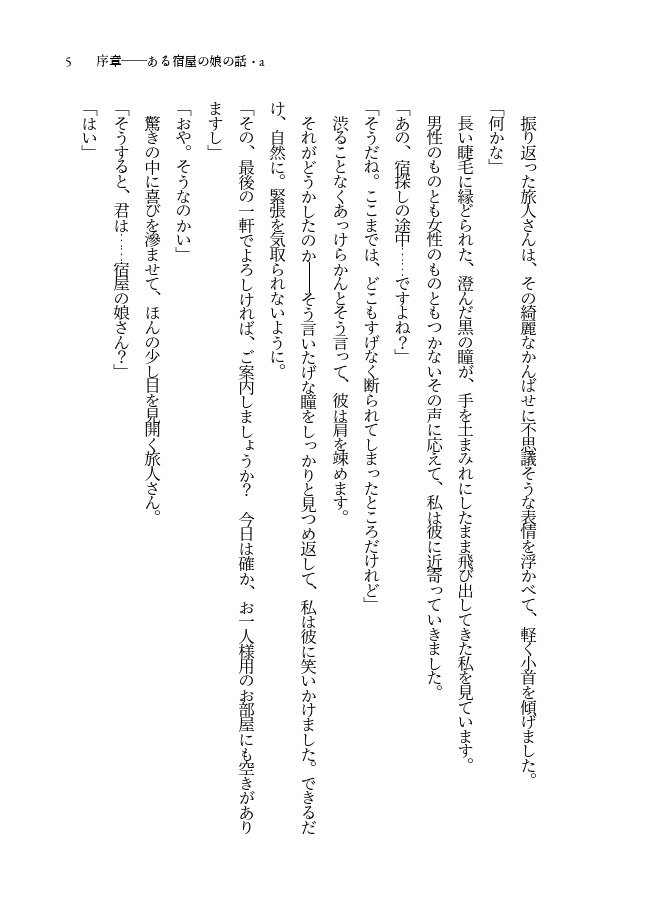 5　序章――ある宿屋の娘の話・a
　振り返った旅人さんは、その綺麗なかんばせに不思議そうな表情を浮かべて、軽く小首を傾げました。
「何かな」
　長い睫毛に縁どられた、澄んだ黒の瞳が、手を土まみれにしたまま飛び出してきた私を見ています。
　男性のものとも女性のものともつかないその声に応えて、私は彼に近寄っていきました。
「あの、宿探しの途中……ですよね？」
「そうだね。ここまでは、どこもすげなく断られてしまったところだけれど」
　渋ることなくあっけらかんとそう言って、彼は肩を竦めます。
　それがどうかしたのか――そう言いたげな瞳をしっかりと見つめ返して、私は彼に笑いかけました。できるだ
け、自然に。緊張を気取られないように。
「その、最後の一軒でよろしければ、ご案内しましょうか？　今日は確か、お一人様用のお部屋にも空きがあり
ますし」
「おや。そうなのかい」
　驚きの中に喜びを滲ませて、ほんの少し目を見開く旅人さん。
「そうすると、君は……宿屋の娘さん？」
「はい」